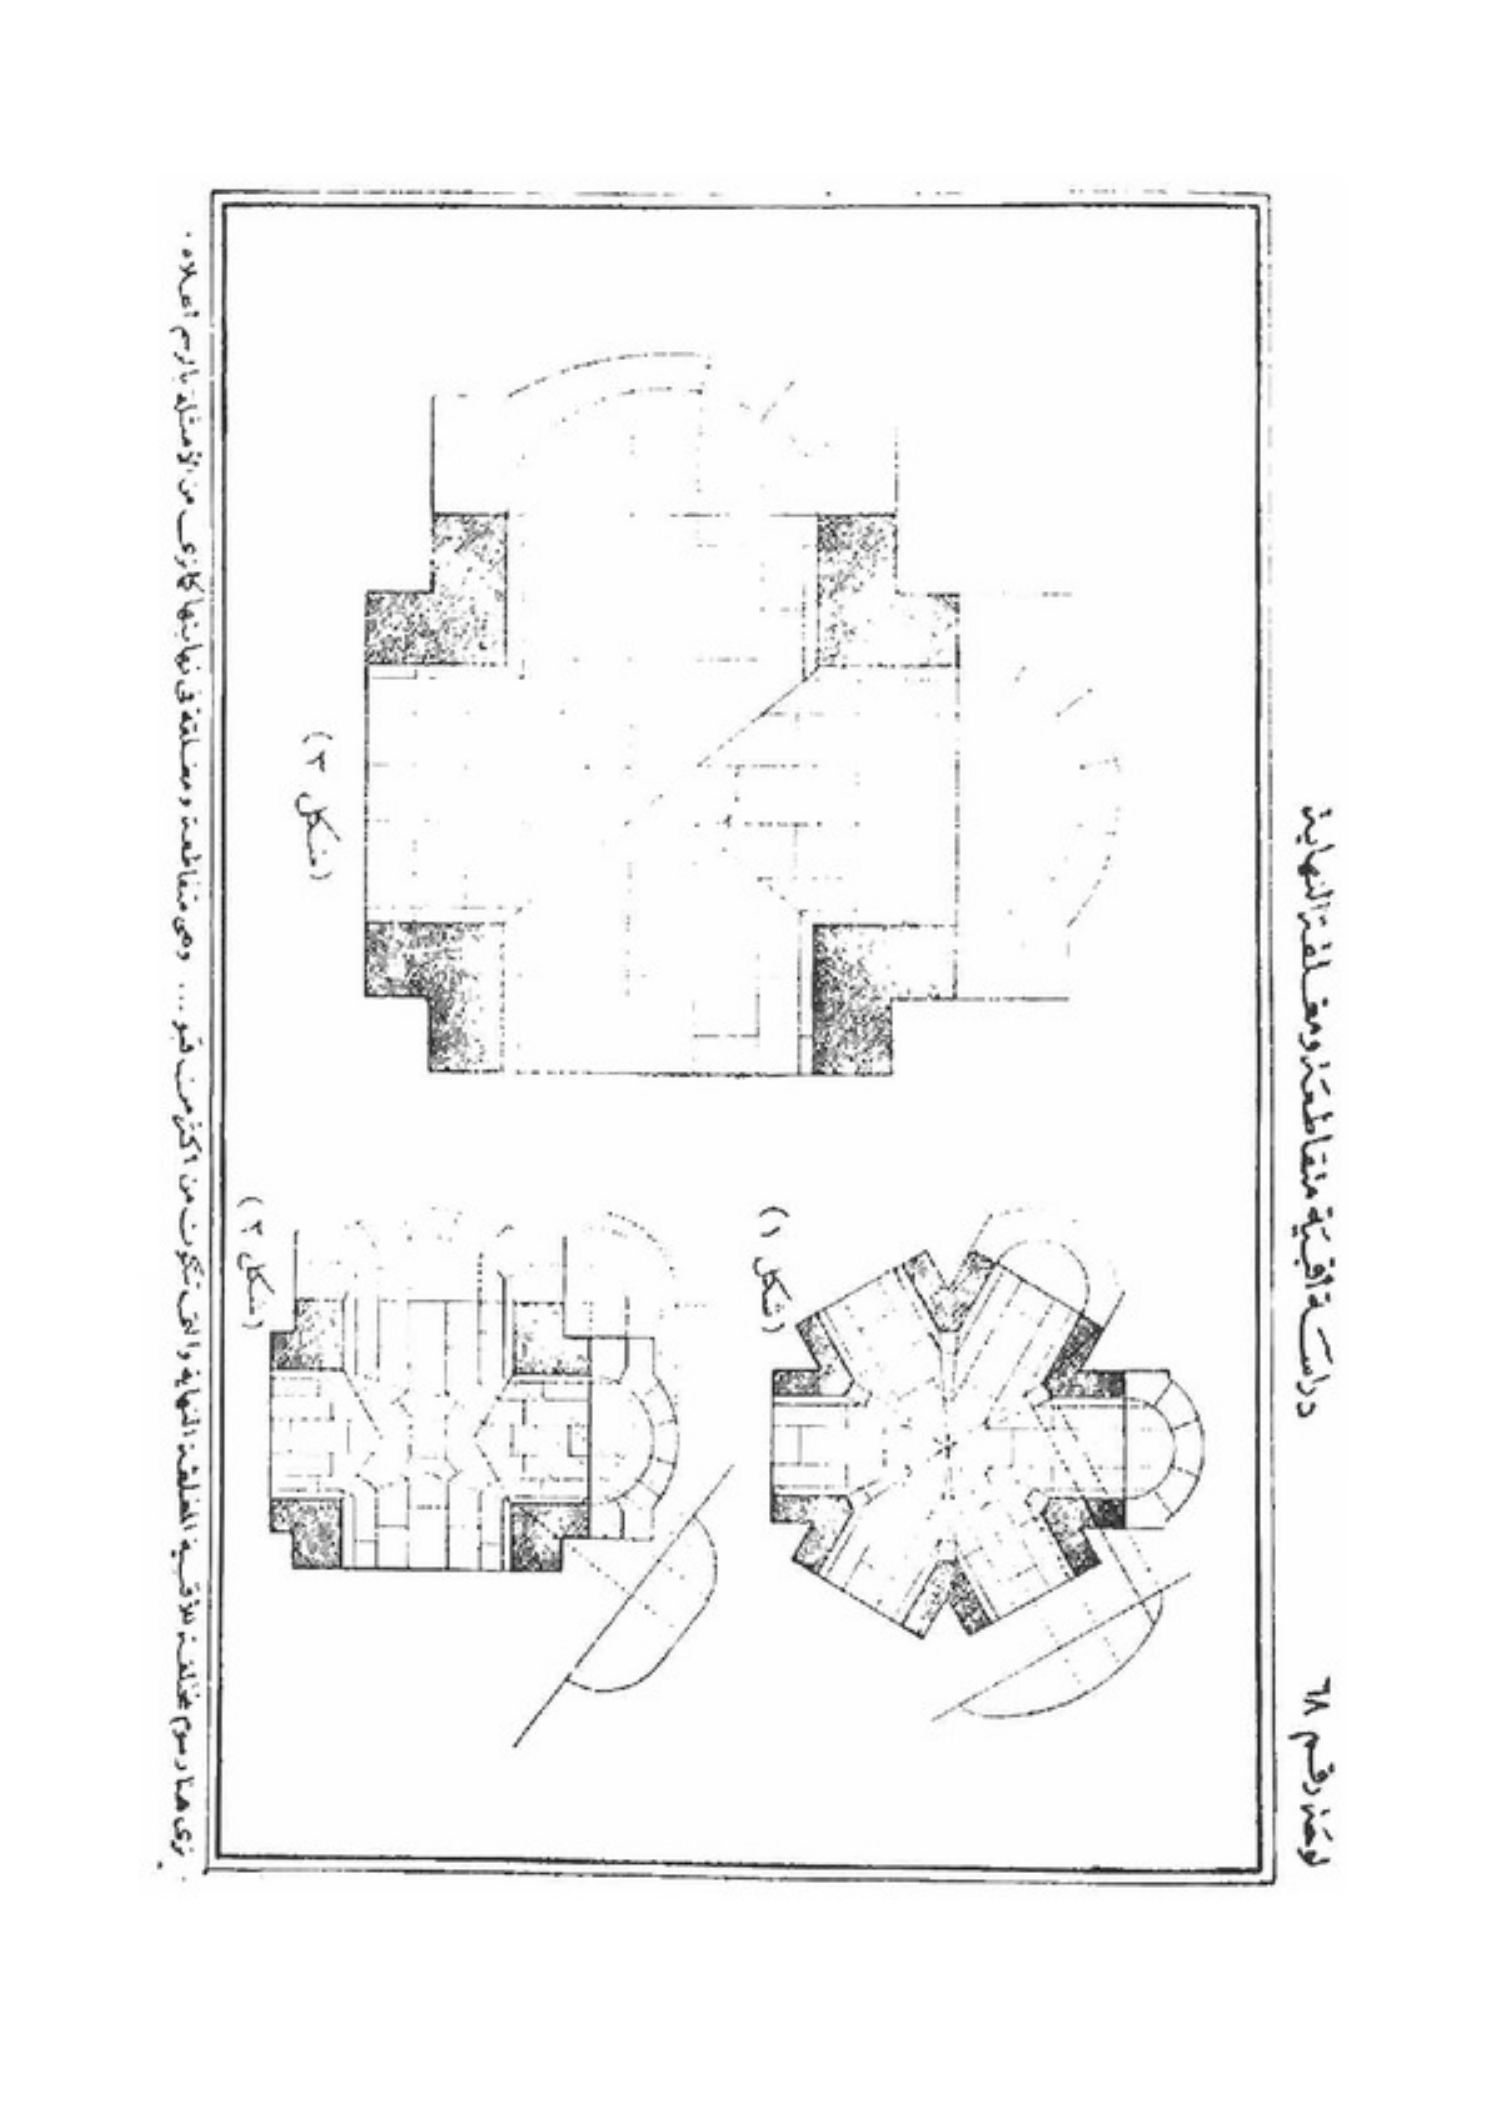 لوحة رقم ٦٨
دراسة أقبية متقاطعة ومغلقة النهاية
(شكل ١)
(شكل ٢)
(شكل ٣)
نرى هنا رسوم مختلفة للأقبية المغلقة النهاية والتى تتكون من أكثر من قبو ... وهى متقاطعة ومغلقة فى نهايتها كما نرى من الأمثلة بالرسم أعلاه .